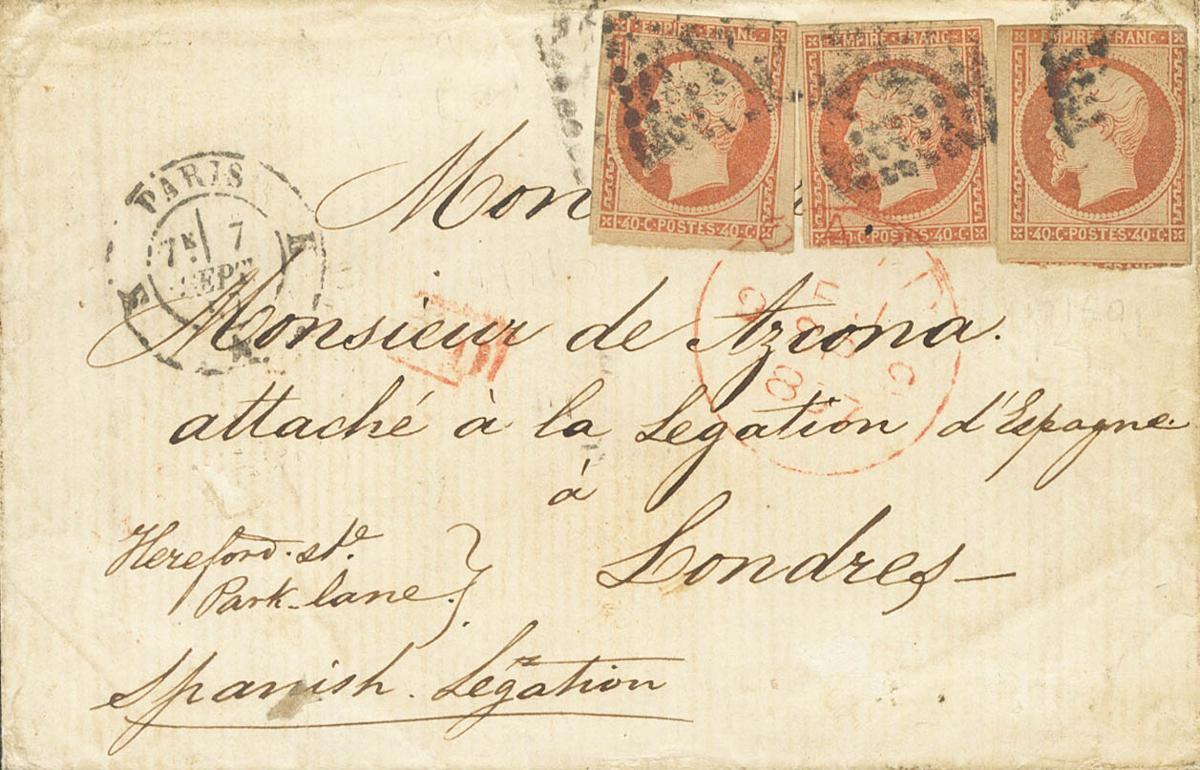 EMPIRE FRANC EMPIRE FRANC EMPIRE FRANC
40·C·POSTES·40·C· 40·C·POSTES·40·C· 40·C·POSTES·40·C·
PARIS
7 SEPT
Mon
Monsieur de Azcona.
attaché à la Legation d'Espagne
à
Londres—
Hereford. st.
Park-lane.
Spanish. Legation